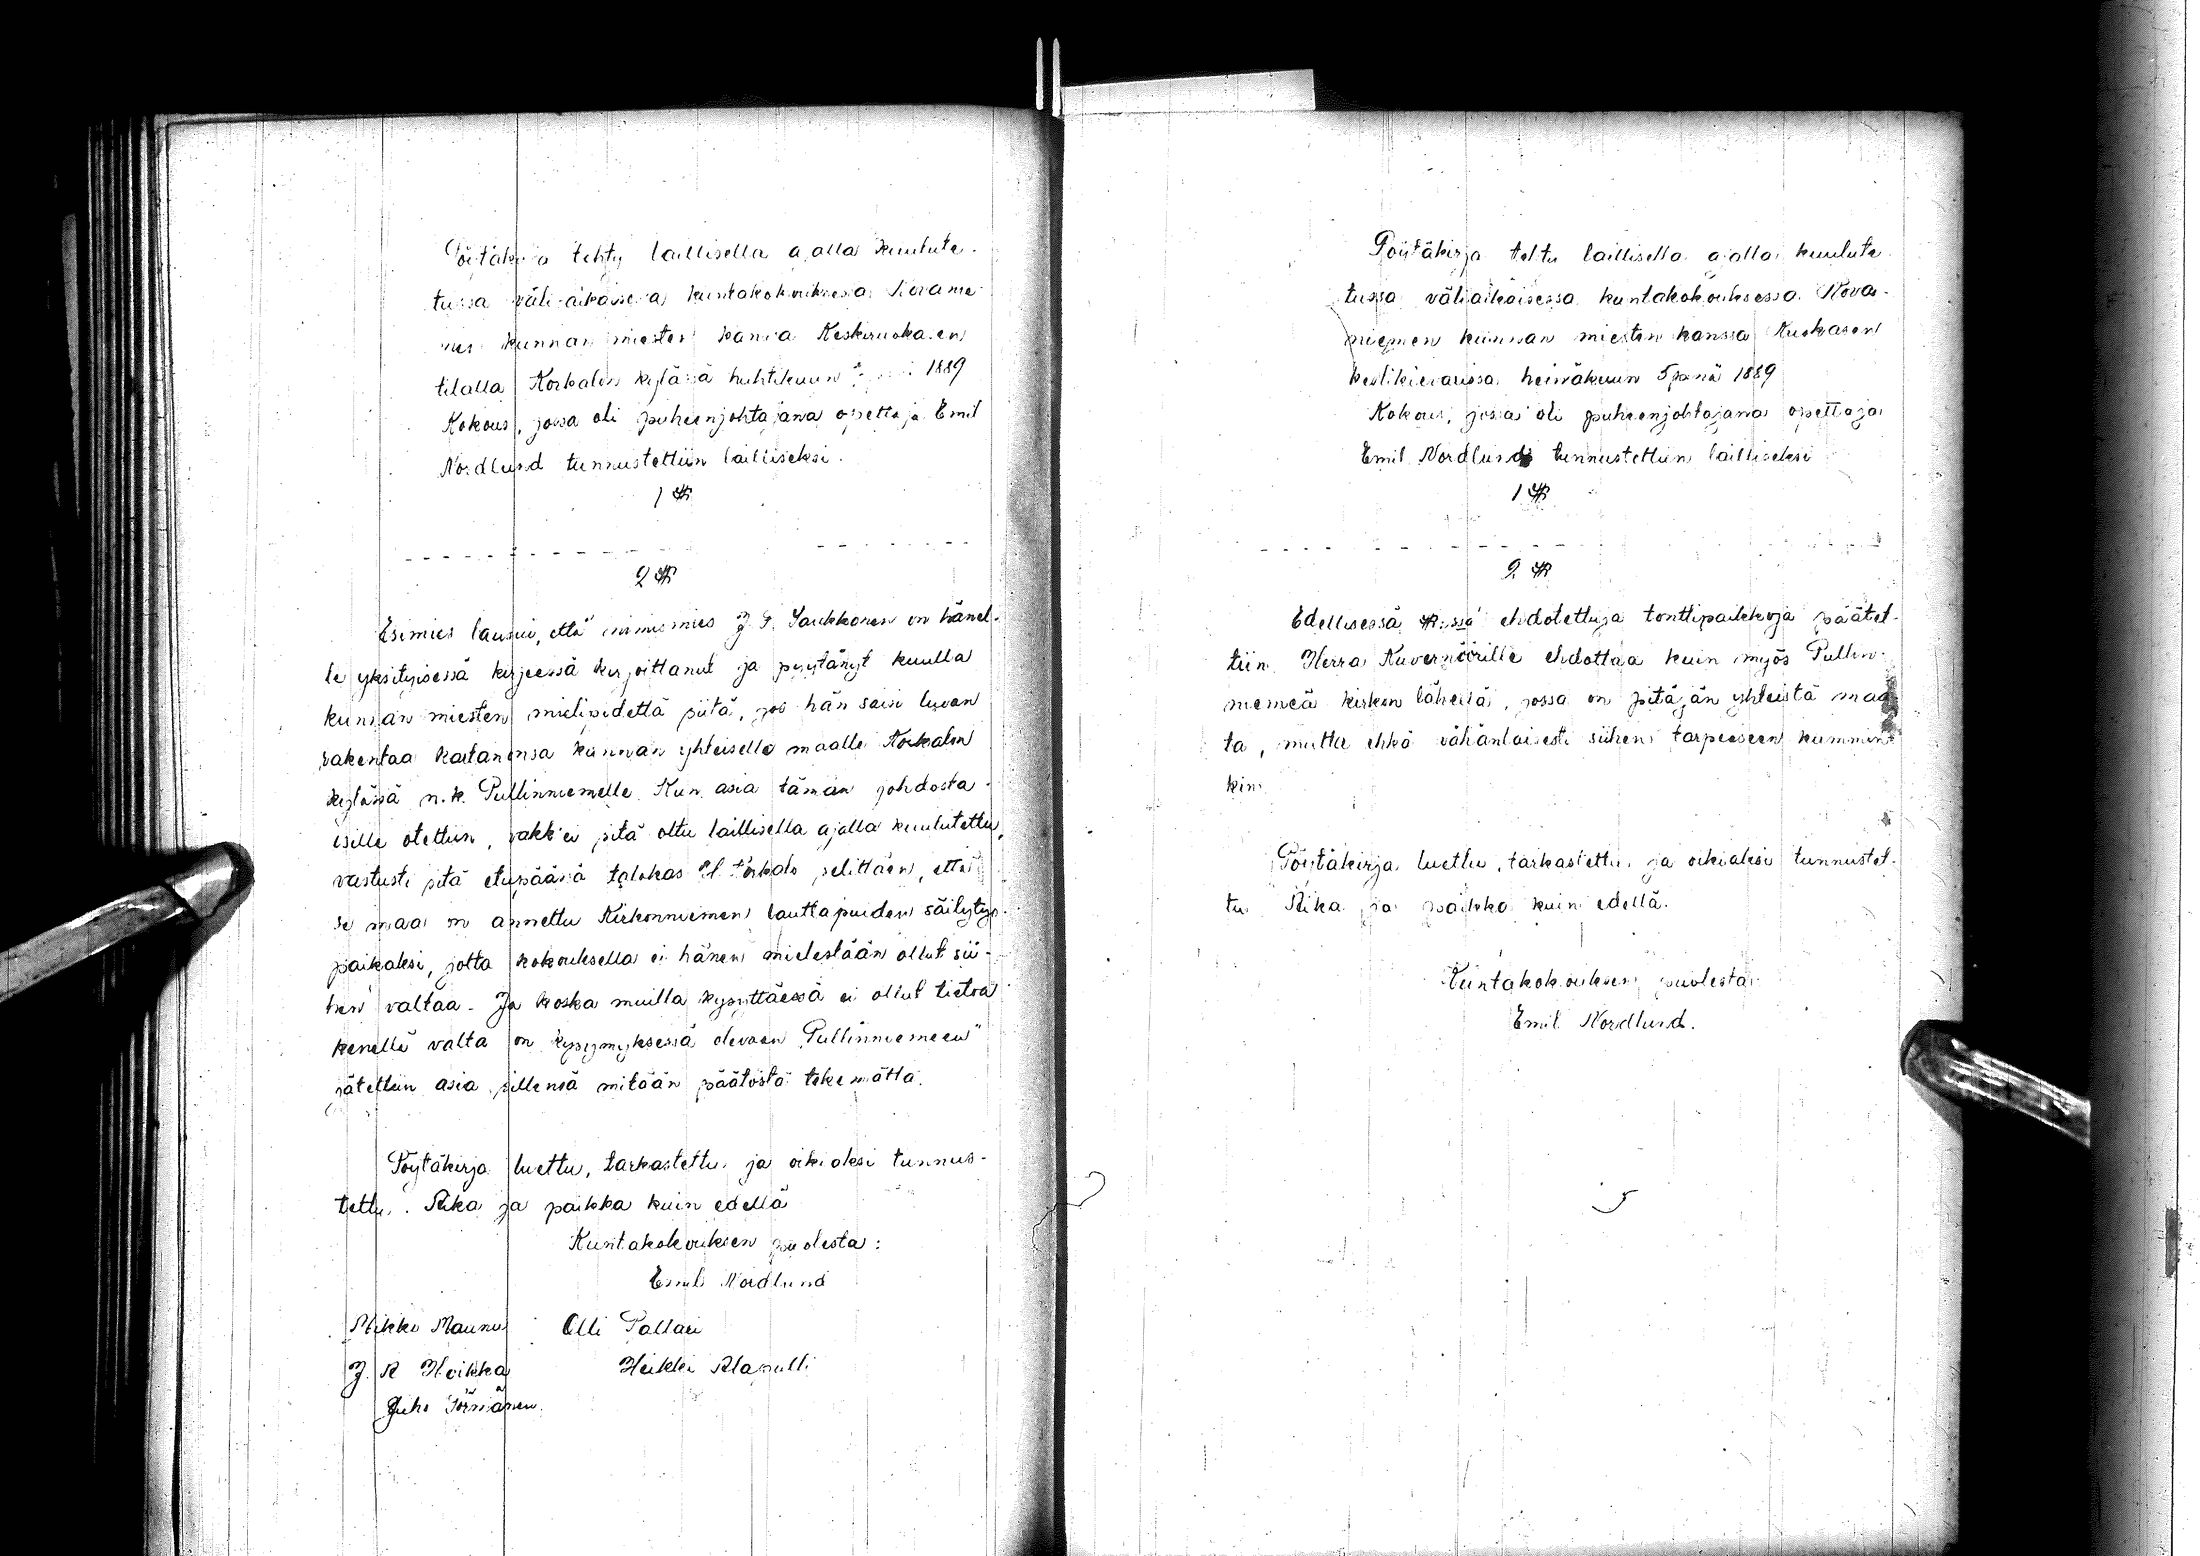 Pöytäkirja tehty laillisella ajalla kuulute-
tussa väliaikaisessa kuntakokouksessa Rovanie-
men kunnan miesten kanssa Keskiruokasen
tilalla Korkalon kylässä huhtikuun 1889
Kokous, jossa oli puheenjohtajana opettaja Emil
Nordlund tunnustettiin lailliseksi.
1 §
2 §
Esimies lausui, että nimismies J. F. Saukkonen on hänel-
le yksityisessä kirjeessä kirjoittanut ja pyytänyt kuulla
kunnan miesten mielipidettä siitä, jos hän saisi luvan
rakentaa kartanonsa kunnan yhteiselle maalle Korkalon
kylässä n.k. Pullinniemelle. Kun asia tämän johdosta
esille otettiin, vaikk'ei sitä oltu laillisella ajalla kuulutettu,
vastusti sitä etupäässä talokas H. Korkalo selittäen, että
se maa on annettu Kirkonniemen lauttapuiden säilytys-
paikaksi, jotta kokouksella ei hänen mielestään ollut sii-
hen valtaa. Ja koska muilla kysyttäessä ei ollut tietoa
kenellä valta on kysymyksessä olevaan "Pullinniemeen"
jätettiin asia sillensä mitään päätöstä tekemättä.
Pöytäkirja luettu, tarkastettu ja oikiaksi tunnus-
tettu. Aika ja paikka kuin edellä
Kuntakokouksen puolesta:
Emil Nordlund
Mikko Maunu Olli Pallari
J. A Hoikka Heikki Alapulli
Juho Törmänen.
Pöytäkirja tehty laillisella ajalla kuulute-
tussa väliaikaisessa kuntakokouksessa Rova-
niemen kunnan miesten kanssa Ruokasen
kestikievarissa heinäkuun 5 pnä 1889
Kokous, jossa oli puheenjohtajana opettaja
Emil Nordlund tunnustettiin lailliseksi
1 §
2 §
Edellisessä §:ssä ehdotettuja tonttipaikkoja päätet-
tiin Herra Kuvernöörille ehdottaa kuin myös Pullin-
niemeä kirkon lähellä, jossa on pitäjän yhteistä maa-
ta, mutta ehkä vähänlaisesti siihen tarpeeseen kummin-
kin
Pöytäkirja luettu, tarkastettu ja oikiaksi tunnustet-
tu Aika ja paikka kuin edellä.
Kuntakokouksen puolesta
Emil Nordlund.